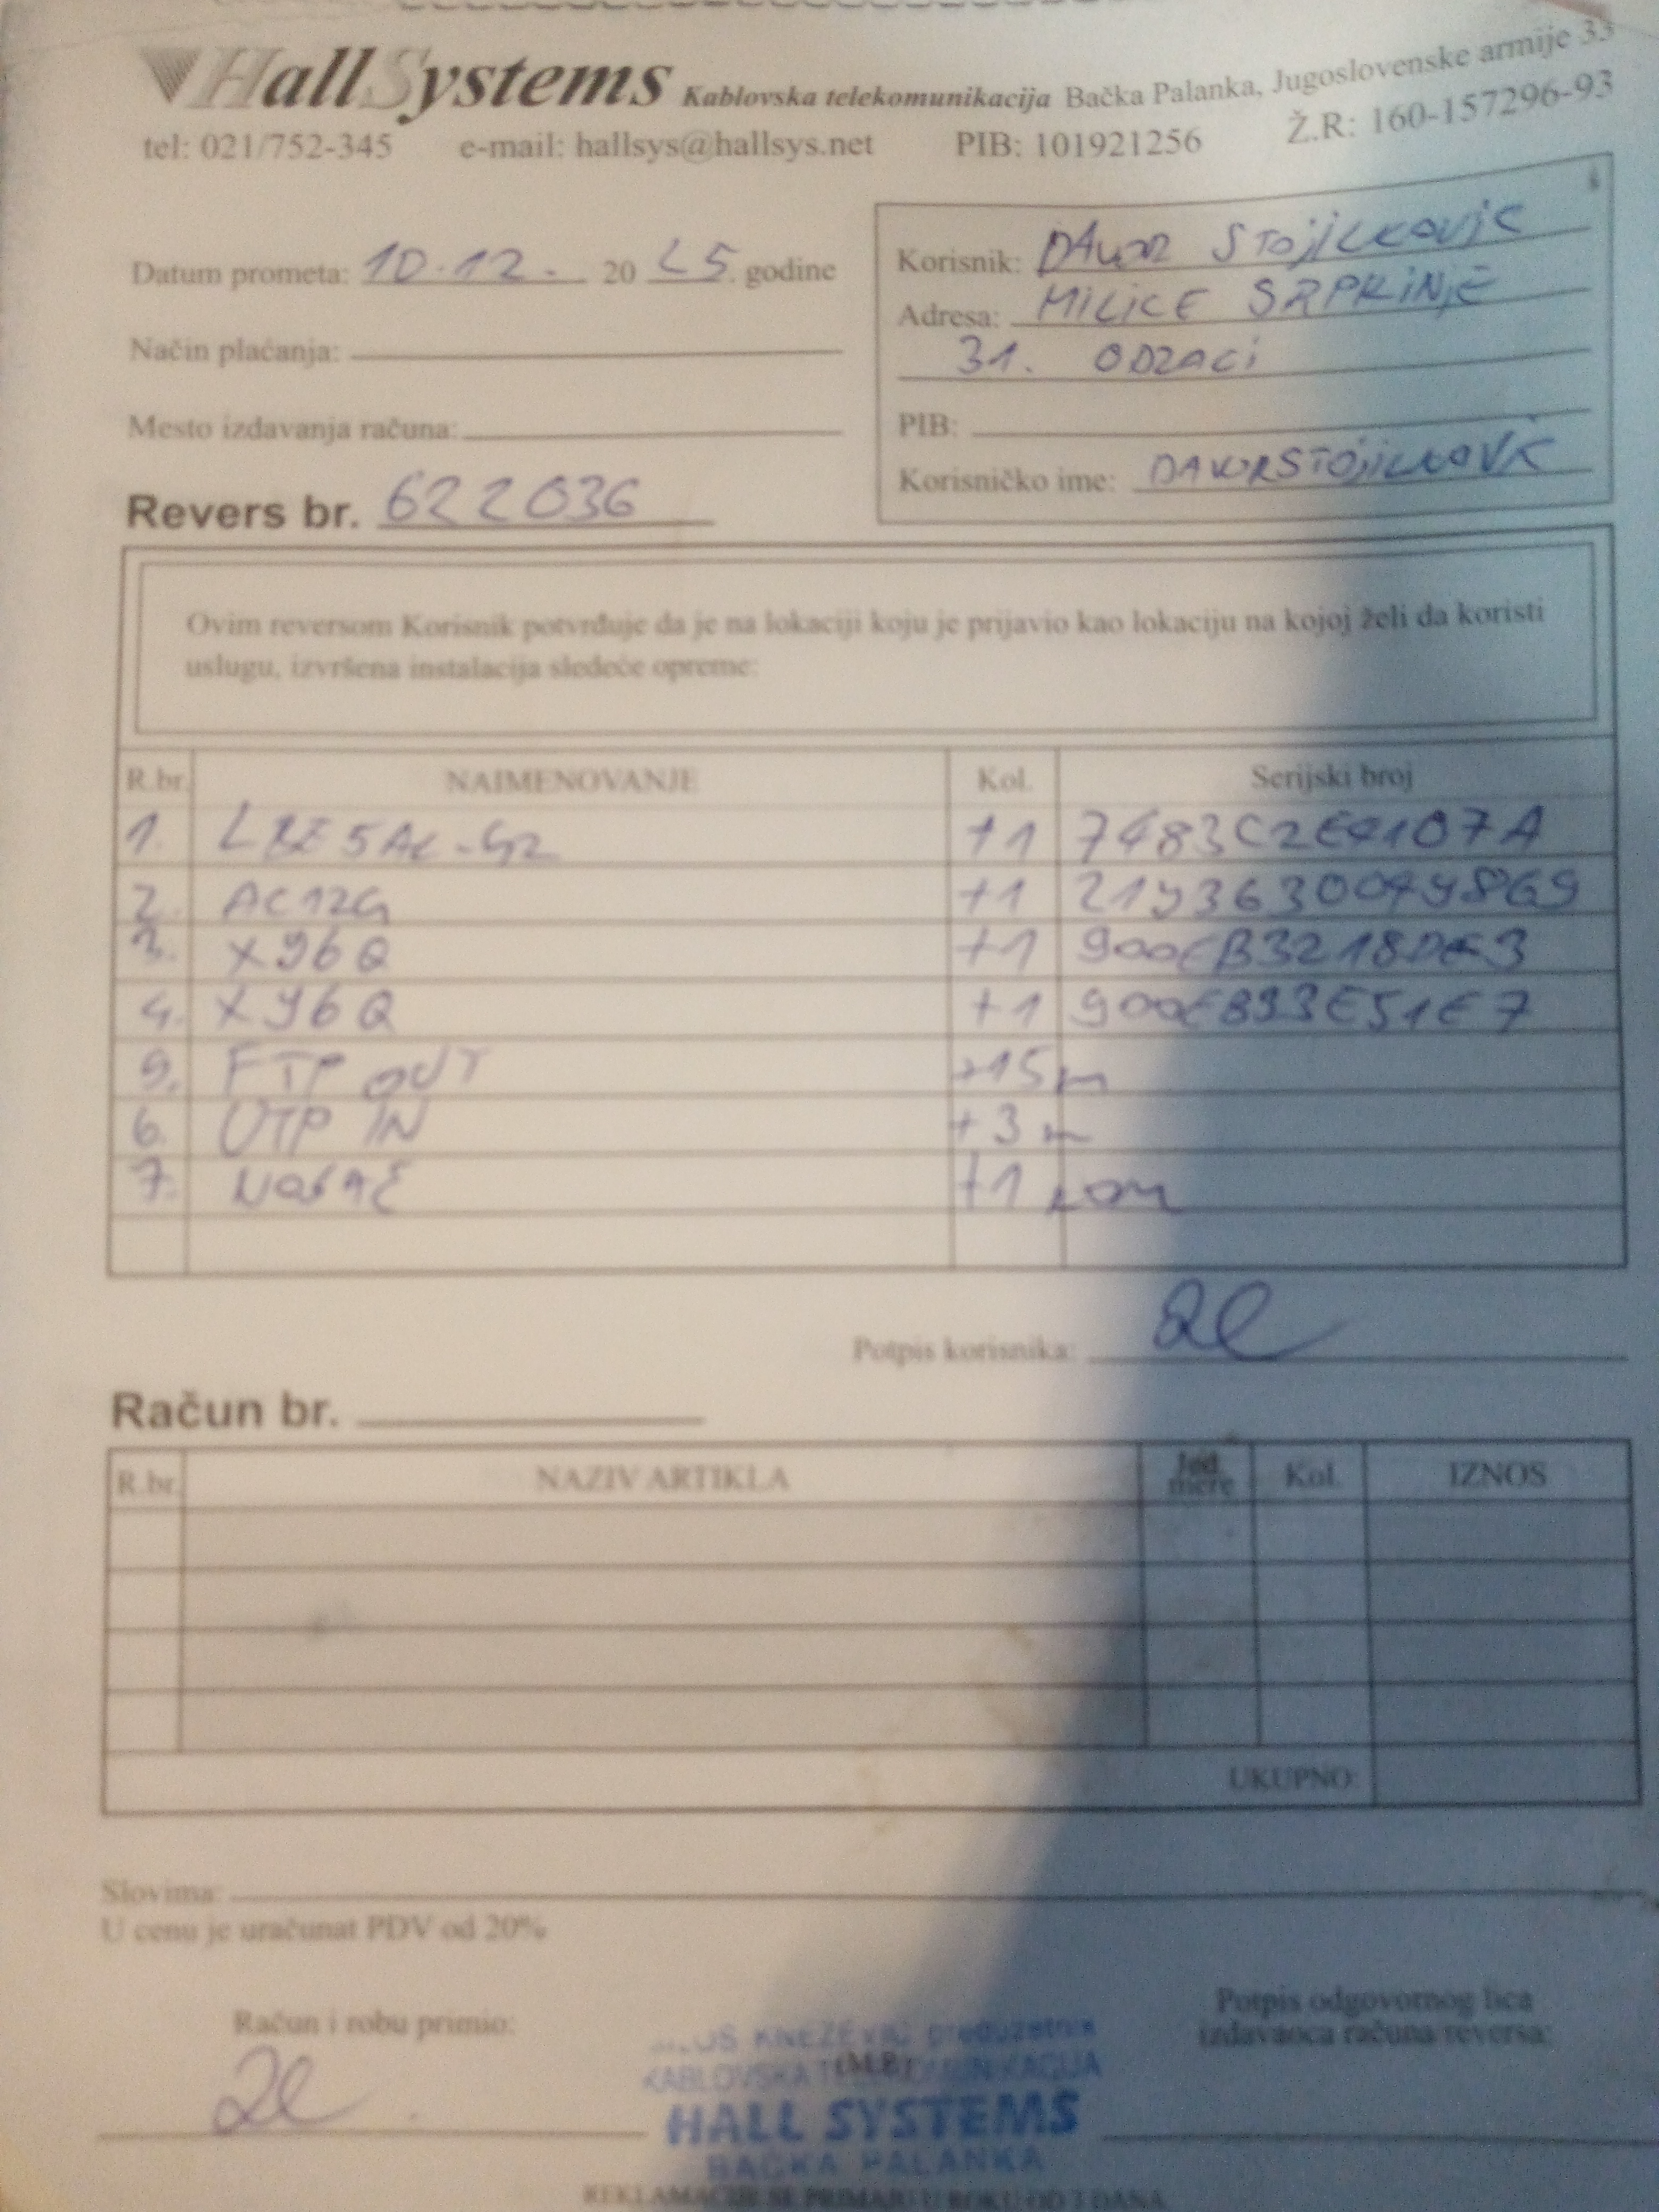 HallSystems Kablovska telekomunikacija Bačka Palanka, Jugoslovenske armije 33
tel: 021/752-345 e-mail: hallsys@hallsys.net PIB: 101921256 Ž.R: 160-157296-93
Datum prometa: 10.12. 20 25. godine
Način plaćanja:
Mesto izdavanja računa:
Revers br. 622036
Korisnik: DAVOR STOJILKOVIC
Adresa: MILICE SRPKINJE
31. ODZACI
PIB:
Korisničko ime: DAVORSTOJILKOVIC
Ovim reversom Korisnik potvrđuje da je na lokaciji koju je prijavio kao lokaciju na kojoj želi da koristi
uslugu, izvršena instalacija sledeće opreme:
R.br. NAIMENOVANJE Kol. Serijski broj
1. LBE5AC-G2 +1 7483C2E4107A
2. AC12G +1
3. X96Q +1
4. X96Q +1 900EB93E51E7
5. FTP OUT +15m
6. UTP IN +3m
7. NOSAČ +1 kom
Potpis korisnika:
Račun br.
R.br. NAZIV ARTIKLA Jed. mere Kol. IZNOS
UKUPNO:
Slovima:
U cenu je uračunat PDV od 20%
Račun i robu primio:
Potpis odgovornog lica
izdavaoca računa/reversa:
(M.P.)
preduzetnik
KABLOVSKA TELEKOMUNIKACIJA
HALL SYSTEMS
BAČKA PALANKA
REKLAMACIJE SE PRIMAJU U ROKU OD 3 DANA